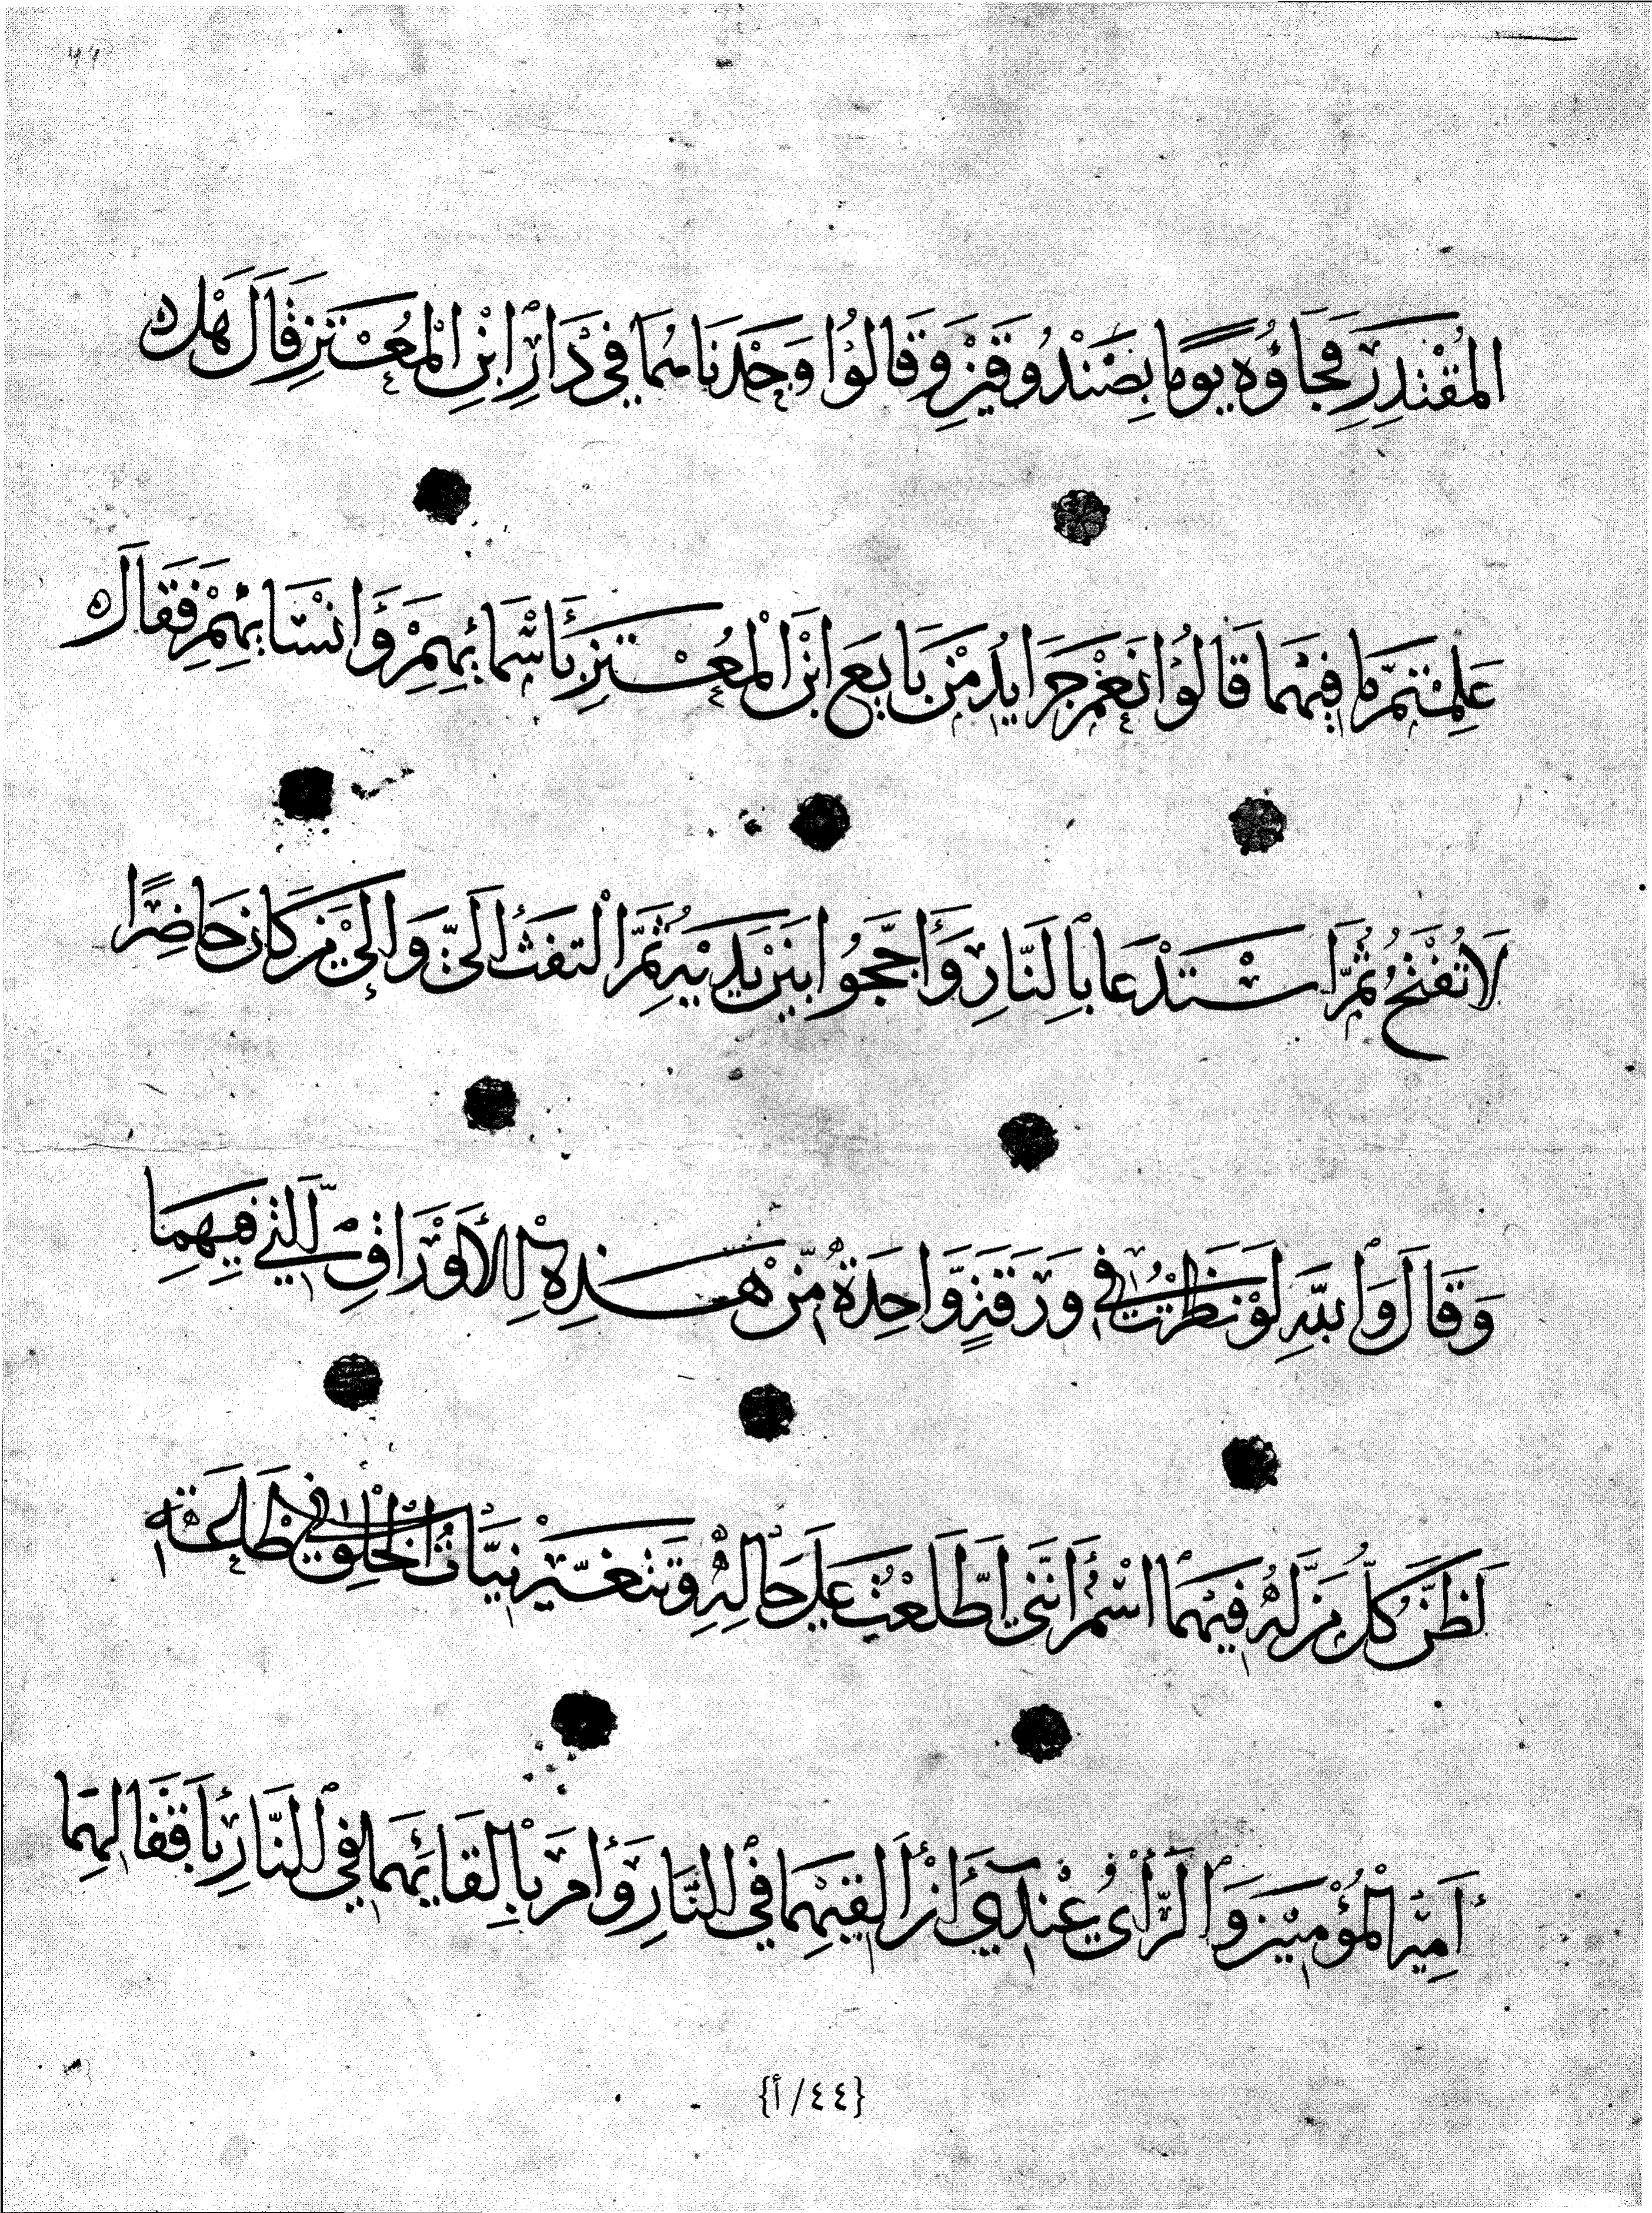 ٤١
المُقْتَدِرِ فَجَاؤُهُ يَوماً بِصَنْدُوقَيْنِ وَقَالُوْا وَجَدْنَاهُمَا فِي دَارِ ابْنِ الْمُعْتَزِ قَالَ هَلْ
عَلِمْتُمْ مَا فِيْهِمَا قَالُوْا نَعَمْ جَرَايِدُ مَنْ بَايَعَ ابْنَ الْمُعْتَزِ بِأَسْمَائِهِمْ وَأَنْسَابِهِمْ فَقَالَ
لَا تُفْتَحُ ثُمَّ اسْتَدْعَا بِالنَّارِ وَأَجَّجُوا بَيْنَ يَدَيْهِ ثُمَّ الْتفتَ الَىَّ وَالىَ مَنْ كَانَ حَاضِرًا
وَقَالَ وَاللهِ لَوْ نَظَرْتُ فِي وَرَقَةٍ وَّاحِدَةٍ مِّنْ هَذِهِ الْأَوْرَاقِ الَّتِي فِيهِمَا
لَظَنَّ كُلُّ مَنْ لَهُ فِيْهِمَا اسْمٌ أَنَّنِي اطَّلَعْتُ عَلَى حَالِهِ وَتَتَغَيَّرُ نِيَّاتُ الْخَلْقِ فِي طَلعَتِهِ
أَمِيْرِ الْمُؤْمِنِيْنَ وَالرَّأْىُ عِنْدِي أَنْ أُلْقِيَهُمَا فِي النَّارِ وَأَمَرَ بِإِلْقَائِهِمَا فِي النَّارِ بِأَقْفَالِهِمَا
{٤٤/أ}